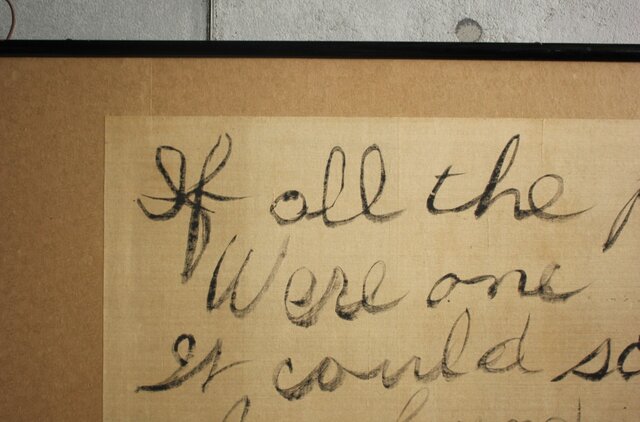 If all the
Were one
It could